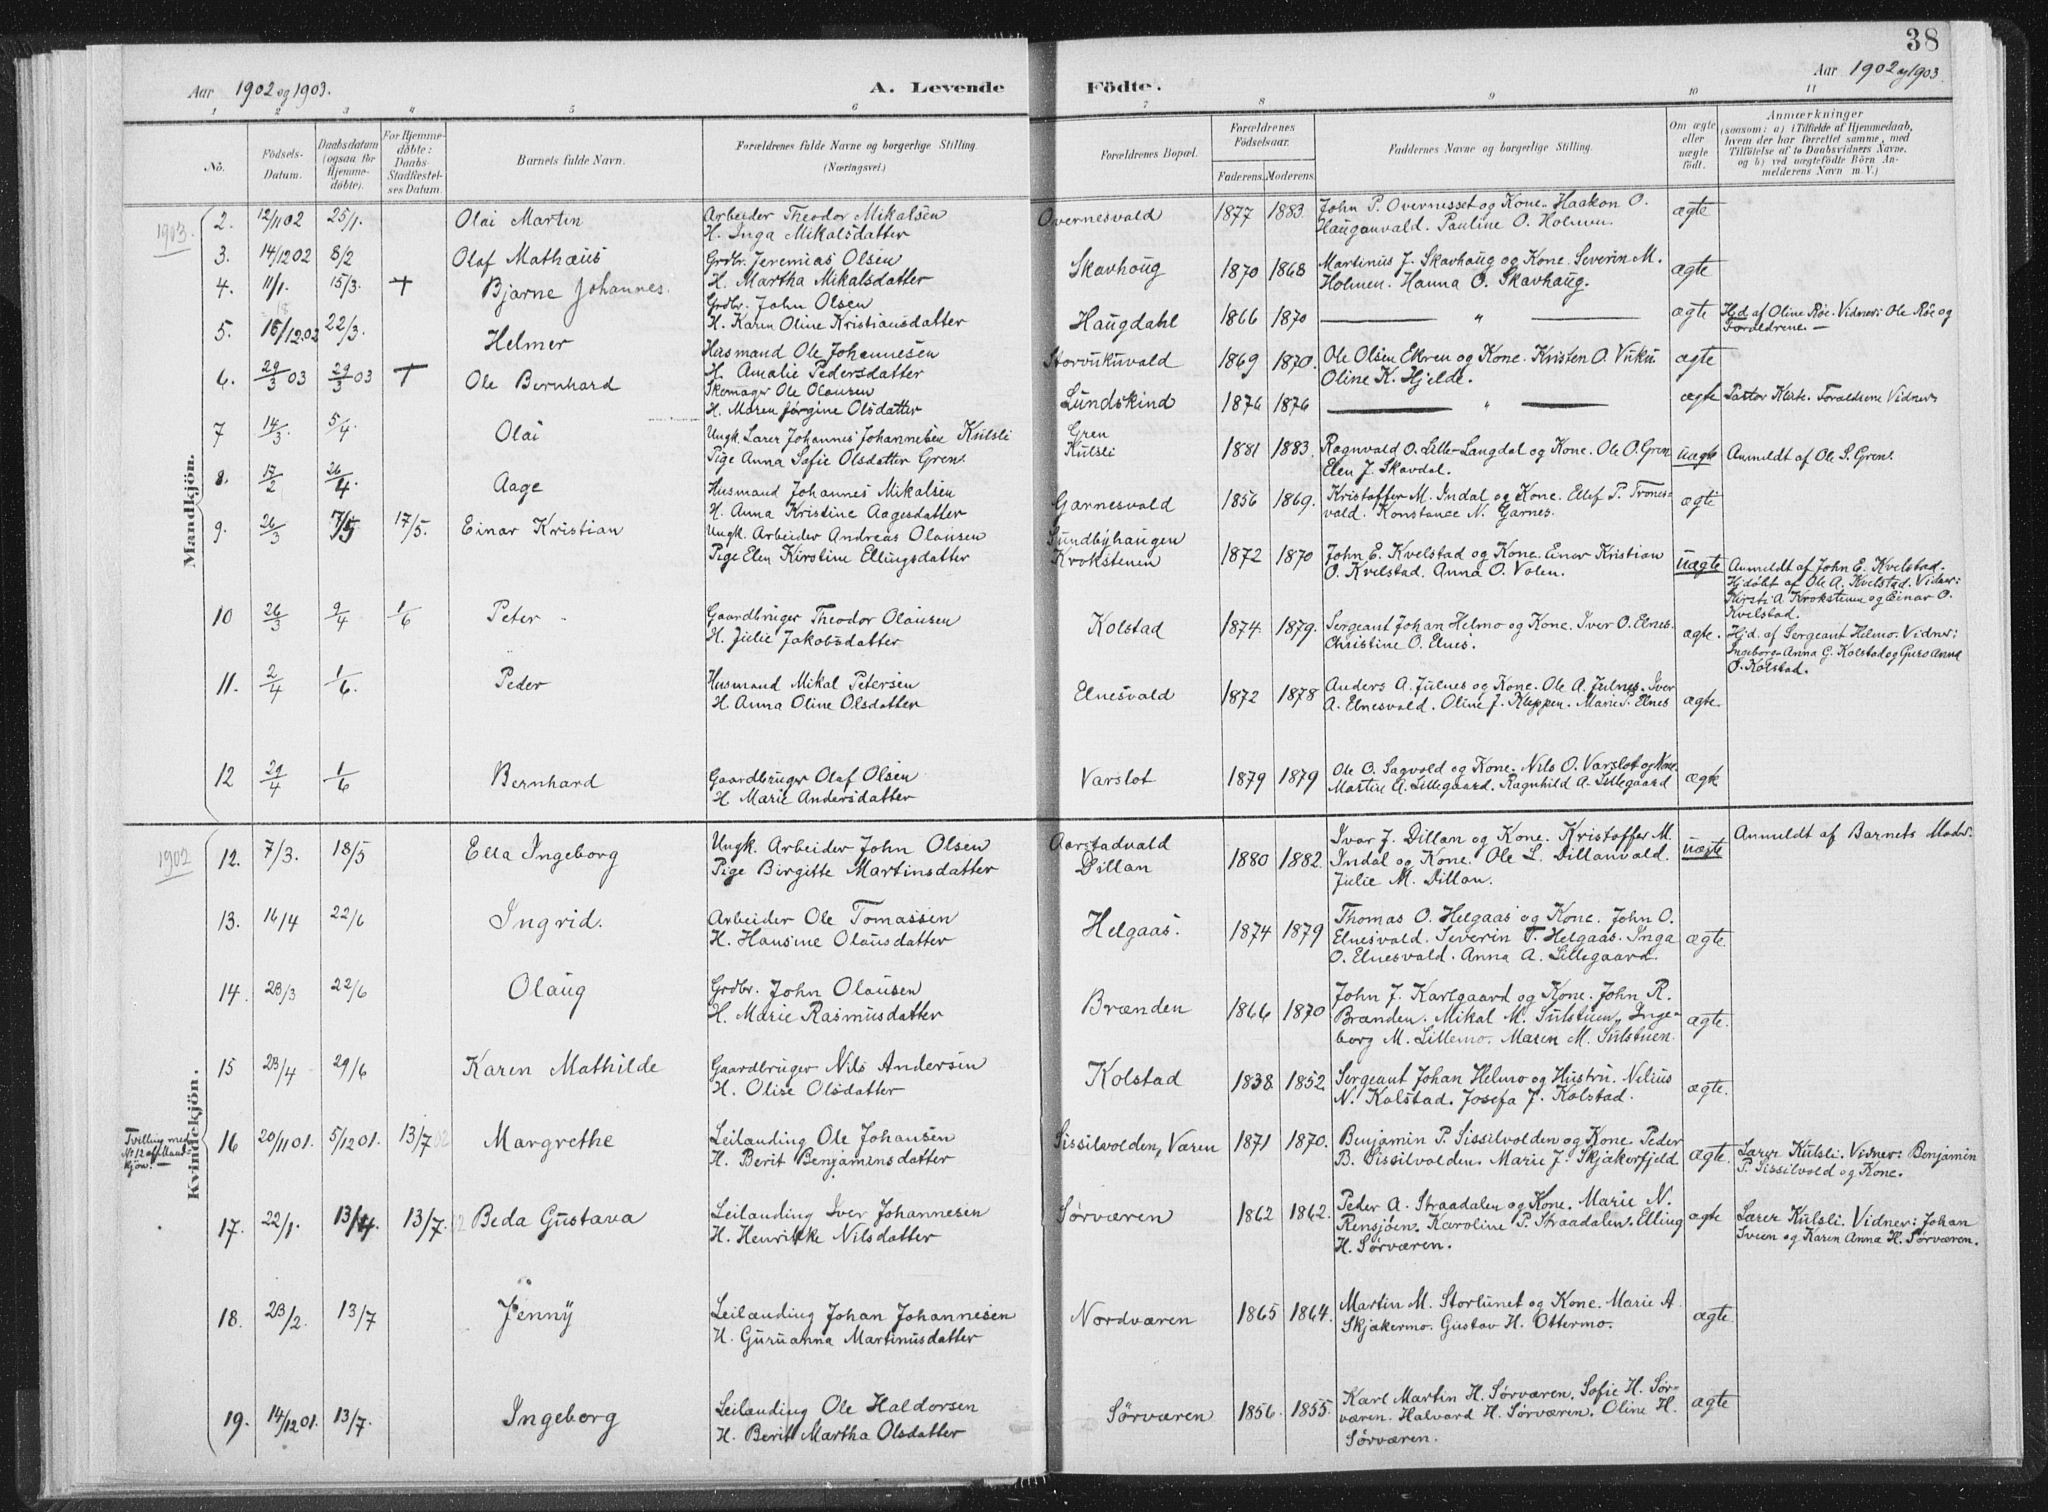 38
Aar 1902 og 1903.
A. Levende
Födte.
Aar 1902 og 1903.
1 2 3 4 5 6 7 8 9 10 11
No.
Födsels-Datum.
Daabsdatum (ogsaa for Hjemmedöbte).
For Hjemmedöbte: Daabs-Stadfæstelses Datum.
Barnets fulde Navn.
Forældrenes fulde Navne og borgerlige Stilling. (Næringsvei.)
Forældrenes Bopæl.
Forældrenes Födselsaar.
Faderens. Moderens.
Faddernes Navne og borgerlige Stilling.
Om ægte eller uægte födt.
Anmærkninger
(saasom: a) i Tilfælde af Hjemmedaab,
hvem der har forrettet samme, med
Tilföielse af to Daabsvidners Navne,
og b) ved uægtefödte Börn Anmelderens Navn m. V.)
1903
Mandkjön.
2. 12/11 02 25/1. Olai Martin
Arbeider Theodor Mikalsen
H. Inga Mikalsdatter
Overnesvald 1877 1883
John P. Overnesset og Kone. Haakon O.
Hauganvald. Pauline O. Holmen.
ægte
3. 14/12 02 8/2 Olaf Mathæus
Grdbr. Jeremias Olsen
H. Martha Mikalsdatter
Skavhoug 1870 1868
Martinus J. Skavhaug og Kone. Severin M.
Holmen. Hanna O. Skavhaug.
ægte
4. 11/1. 15/3. + Bjarne Johannes.
Grdbr. John Olsen
H. Karen Oline Kristiansdatter
Haugdahl 1866 1870
— " —
ægte
Hjd af Oline Röe. Vidner: Ole Röe og
Forældrene. —
5. 15/12 02 22/3. Helmer
Husmand Ole Johannesen
H. Amalie Pedersdatter
Storvukuvald 1869 1870.
Ole Olsen Ekren og Kone. Kristen O. Vuku
Oline K. Hjelde.
ægte
6. 29/3 03 29/3 03 + Ole Bernhard
Skomager Ole Olausen
H. Maren Jørgine Olsdatter
Lundskind 1876 1876
— " —
ægte
Pastor . Forældrene Vidner
7 14/3. 5/4. Olai
Ungk. Lærer Johannes Johannesen Kulsli
Pige Anna Sofie Olsdatter Gren.
Gren
Kulsli
1881 1883.
Ragnvald O. Lille-Langdal og Kone. Ole O. Gren
Elen J. Skavdal.
uægte
Anmeldt af Ole S. Gren.
8. 17/2 26/4. Aage
Husmand Johannes Mikalsen
H. Anna Kristine Aagesdatter
Garnesvald 1856 1869.
Kristoffer M. Indal og Kone. Ellef P. Trones-
vald. Konstance N. Garnes.
ægte
9. 26/3 7/5 17/5. Einar Kristian
Ungk. Arbeider Andreas Olausen
Pige Elen Kirstine Ellingsdatter
Sundbyhaugen
Krokstenen
1872 1870
John E. Kvelstad og Kone. Einar Kristian
O. Kvelstad. Anna O. Volen.
uægte
Anmeldt af John E. Kvelstad.
Hjdöbt af Ole A. Kvelstad. Vidner:
Kirsti A. Krokstenen og Einar O.
Kvelstad.
10 26/3 9/4 1/6 Peter
Gaardbruger Theodor Olausen
H. Julie Jakobsdatter
Kolstad 1874. 1879.
Sergeant Johan Helmo og Kone. Iver O. Elnes.
Christine O. Elnes.
ægte.
Hjd. af Sergeant Helmo. Vidner:
Ingeborg Anna G. Kolstad og Guro Anna
O. Kolstad.
11. 2/4 1/6. Peder
Husmand Mikal Petersen
H. Anna Oline Olsdatter
Elnesvald 1872 1878
Anders A. Julnes og Kone. Ole A. Julnes. Iver
A. Elnesvald. Oline J. Kleppen. Marie P. Elnes
ægte.
12 29/4 1/6 Bernhard
Gaardbruger Olaf Olsen
H. Marie Andersdatter
Varslot 1879 1879
Ole O. Sagvold og Kone. Nils O. Varslot og Kone.
Martin A. Lillegaard. Ragnhild A. Lillegaard
ægte
1902
Kvindekjön.
12. 7/3. 18/5 Ella Ingeborg
Ungk. Arbeider John Olsen
Pige Birgitte Martinsdatter
Aarstadvald
Dillan
1880 1882.
Ivar J. Dillan og Kone. Kristoffer M.
Indal og Kone. Ole L. Dillanvald.
Julie M. Dillan.
uægte
Anmeldt af Barnets Moder.
13. 16/4 22/6 Ingrid.
Arbeider Ole Tomassen
H. Hansine Olausdatter
Helgaas. 1874 1879
Thomas O. Helgaas og Kone. John O.
Elnesvald. Severin T. Helgaas. Inga
O. Elnesvald. Anna A. Lillegaard.
ægte.
14. 23/3 22/6 Olaug
Grdbr. John Olausen
H. Marie Rasmusdatter
Brænden 1866 1870
John J. Karlgaard og Kone. John R.
Brænden. Mikal M. Sulstuen, Inge-
borg M. Lillemo. Maren M. Sulstuen.
ægte.
15 23/4 29/6 Karen Mathilde
Gaardbruger Nils Andersen
H. Olise Olsdatter
Kolstad 1838 1852
Sergeant Johan Helmo og Hustru. Nilius
N. Kolstad. Josefa J. Kolstad.
ægte.
Tvilling med
No 12 af Mand-
kjön. —
16 20/11 01. 5/12 01. 13/7 02 Margrethe
Leilænding Ole Johansen
H. Berit Benjaminsdatter
Sissilvolden, Væren 1871 1870.
Benjamin P. Sissilvolden og Kone. Peder
B. Sissilvolden. Marie J. Skjækerfjeld
ægte.
Lærer Kulsli. Vidner: Benjamin
P. Sissilvold og Kone.
17. 22/1. 13/4. 13/7. 02 Beda Gustava
Leilænding Iver Johannesen
H. Henrikke Nilsdatter
Sørværen 1862 1862.
Peder A. Straadalen og Kone. Marie N.
Rensjöen. Karoline P. Straadalen. Elling
H. Sørværen.
ægte
Lærer Kulsli. Vidner: Johan
Sveen og Karen Anna H. Sørværen.
18. 23/2. 13/7 Jenny
Leilænding Johan Johannesen
H. Guruanna Martinusdatter
Nordværen 1865 1864.
Martin M. Storlunet og Kone. Marie A.
Skjækermo. Gustav H. Ottermo.
ægte.
19. 14/12 01. 13/7. Ingeborg
Leilænding Ole Haldorsen
H. Berit Martha Olsdatter
Sörværen 1856. 1855.
Karl Martin H. Sørværen. Sofie H. Sør-
væren. Halvard H. Sørværen. Oline H.
Sørværen.
ægte